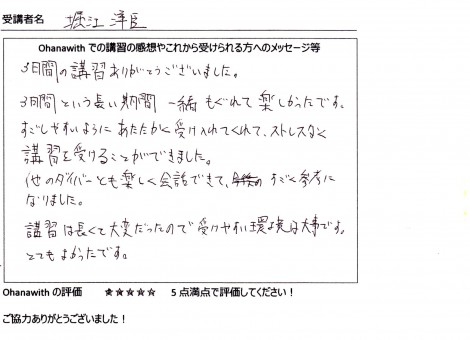 受講者名 堀江 洋臣
Ohanawith での講習の感想やこれから受けられる方へのメッセージ等
3日間の講習ありがとうございました。
3日間という長い期間 一緒 もぐれて楽しかったです。
すごしやすいように あたたかく受け入れてくれて、ストレスなく
講習を受けることができました。
他のダイバーとも楽しく会話できて、すごく参考に
なりました。
講習は長くて大変だったので受けやすい環境は大事です。
とてもよかったです。
Ohanawith の評価 ★★★★★ 5 点満点で評価してください！
ご協力ありがとうございました！